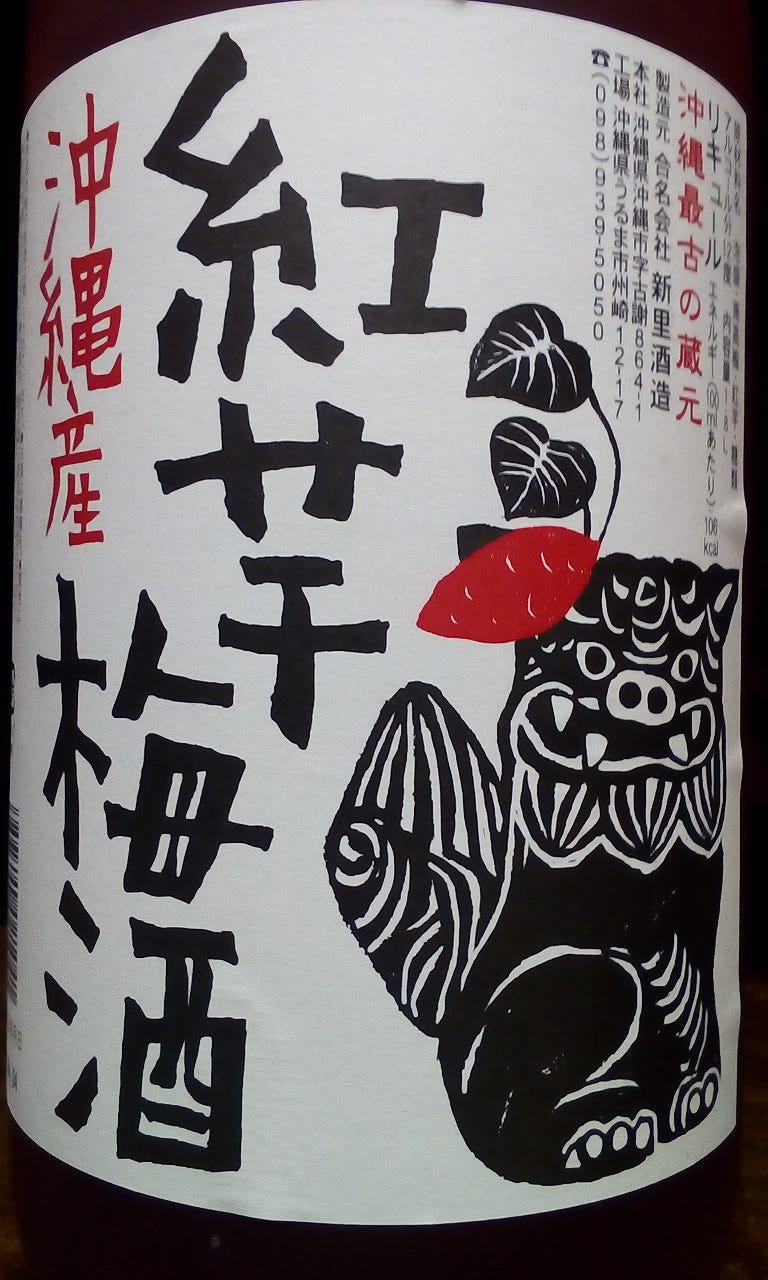 リキュール エネルギー(100mlあたり)106kcal
沖縄最古の蔵元
製造元 合名会社 新里酒造
本社 沖縄県沖縄市字古謝864-1
工場 沖縄県うるま市州崎12-17
☎(098)939-5050
紅芋
梅酒
沖縄産